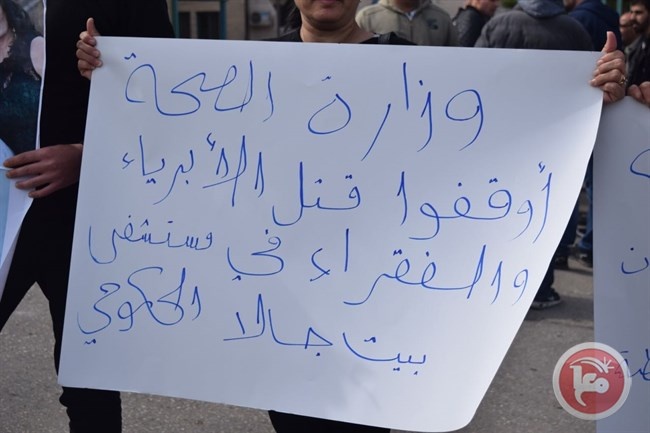 وزارة الصحة
أوقفوا قتل الأبرياء
والفقراء في مستشفى
بيت جالا الحكومي
معا